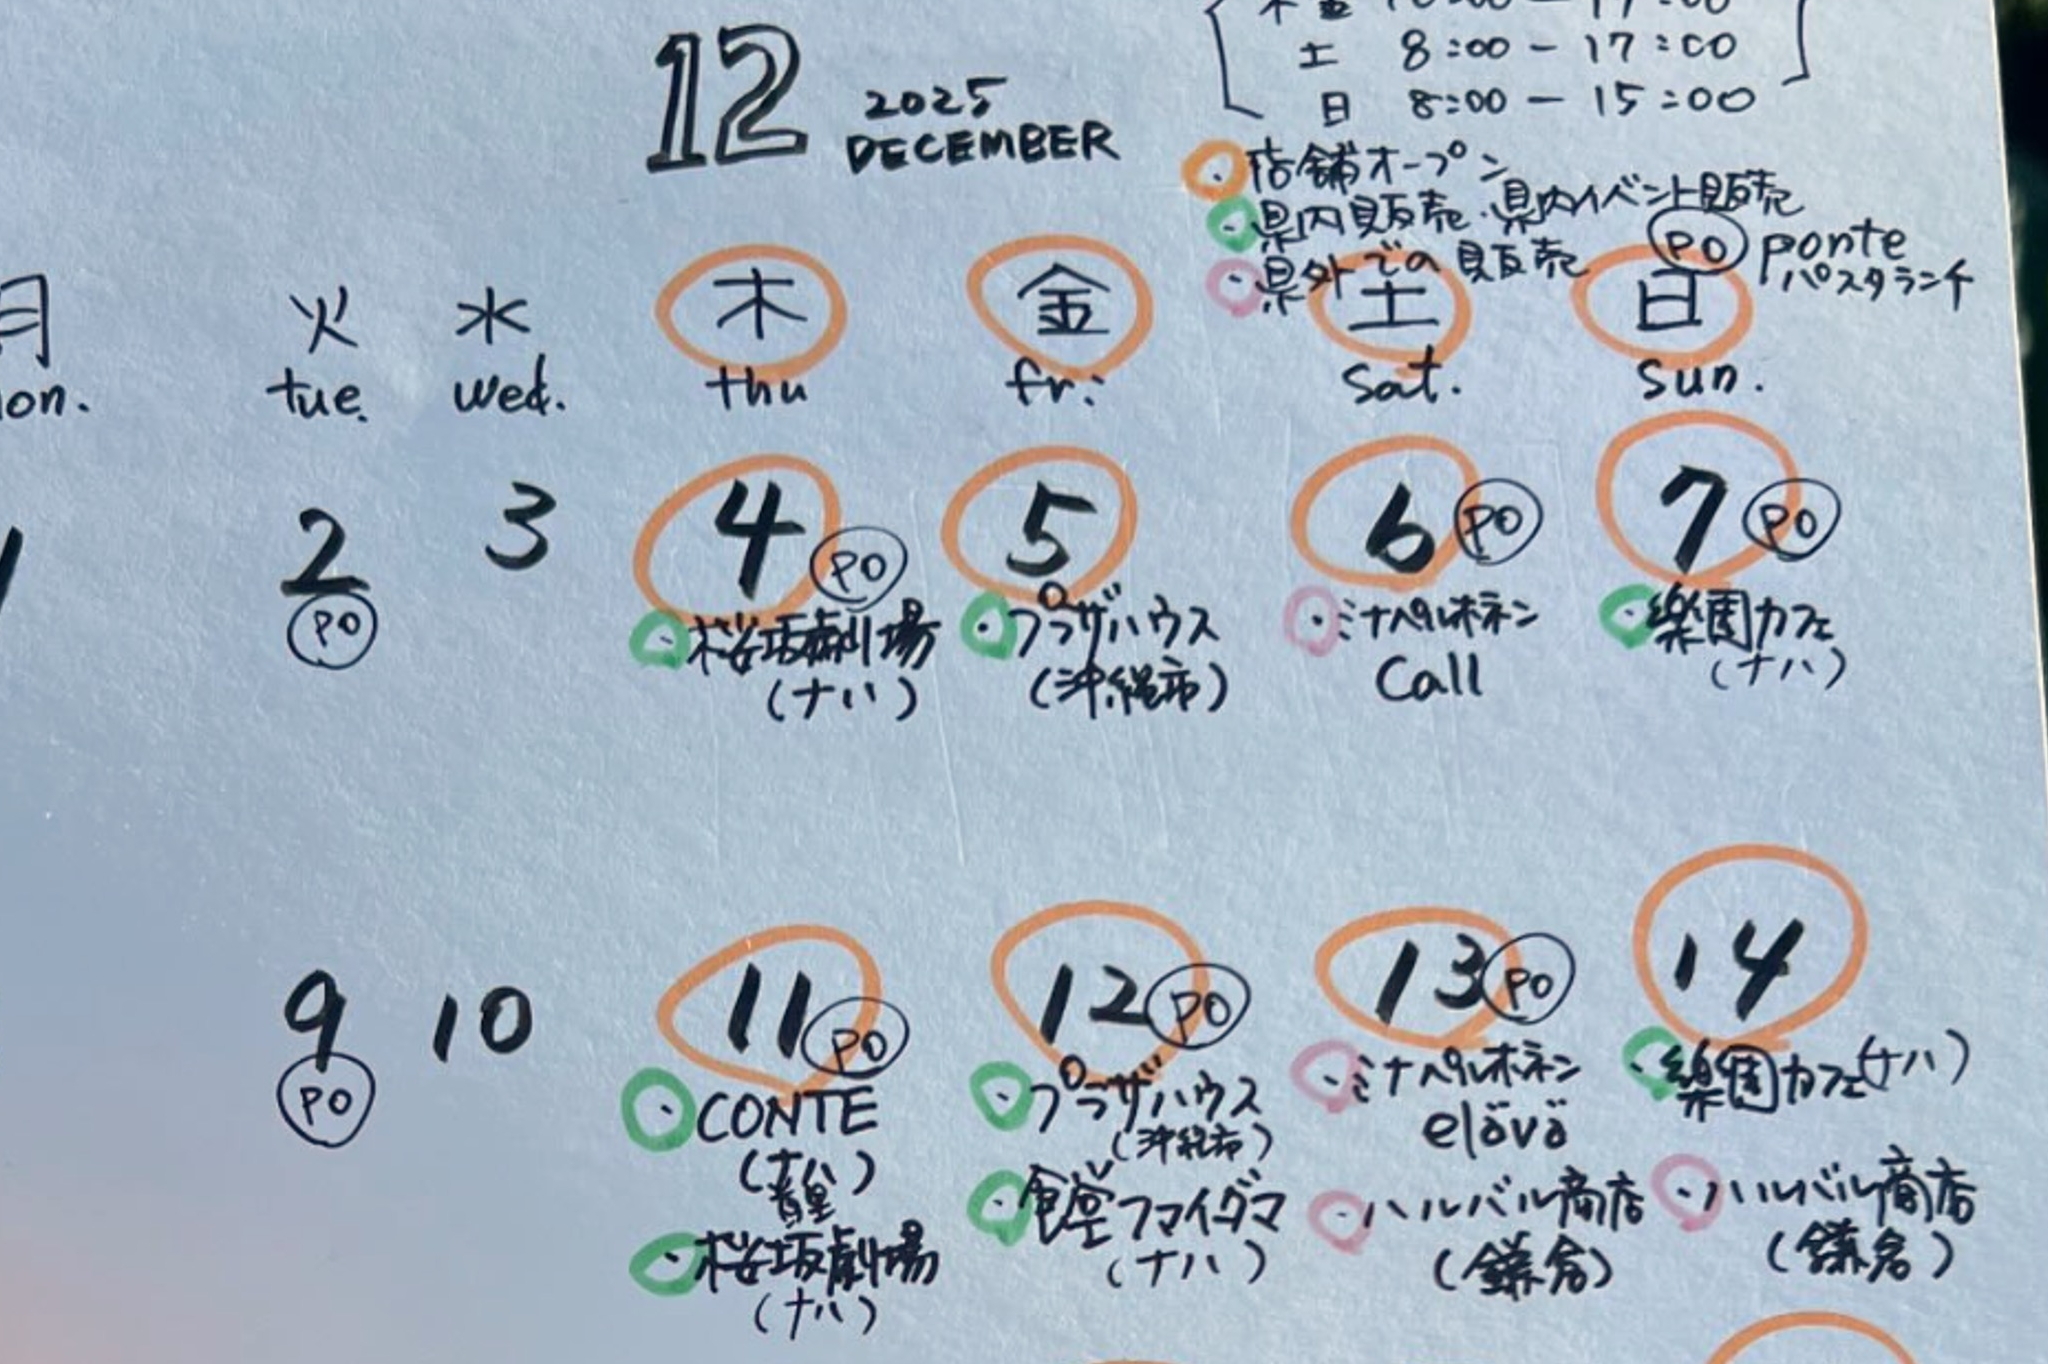 12 2025
DECEMBER
土 8:00 - 17:00
日 8:00 - 15:00
店舗オープン
・県内販売・県内イベント販売
・県外での販売
PO ponte
パスタランチ
月 火 水 木 金 土 日
tue. wed. thu fri. sat. sun.
1 2 3 4 5 6 7
PO PO PO PO
・桜坂劇場
(ナハ)
・プラザハウス
(沖縄市)
・ミナペルホネン
Call
・楽園カフェ
(ナハ)
9 10 11 12 13 14
PO PO PO PO
・CONTE
(ナハ
首里)
・桜坂劇場
(ナハ)
・プラザハウス
(沖縄市)
・食堂ファイダマ
(ナハ)
・ミナペルホネン
elävä
・ハルバル商店
(鎌倉)
・楽園カフェ(ナハ)
・ハルバル商店
(鎌倉)